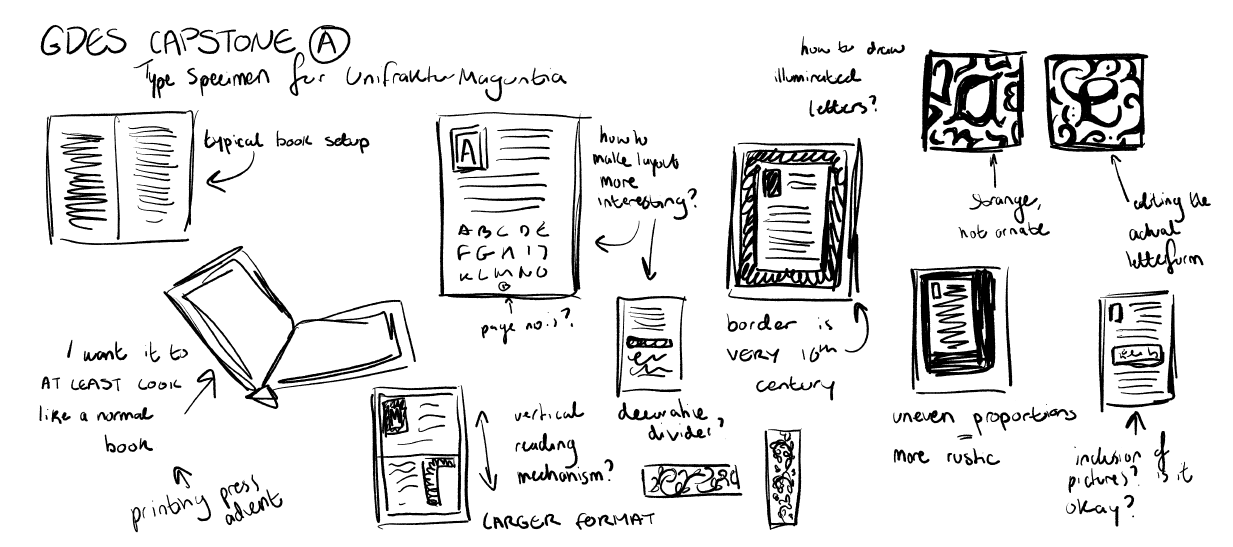 GDES CAPSTONE A
Type Specimen for UnifrakturMaguntia
typical book setup
A
A B C D E
F G H I J
K L M N O
page no.s?
how to
make layout
more
interesting?
how to draw
illuminated
letters?
a
e
strange,
not ornate
editing the
actual
letterform
I want it to
AT LEAST LOOK
like a normal
book
printing press
advent
vertical
reading
mechanism?
LARGER FORMAT
decorative
divider?
border is
VERY 16th
century
uneven proportions
=
more rustic
inclusion of
pictures? is it
okay?